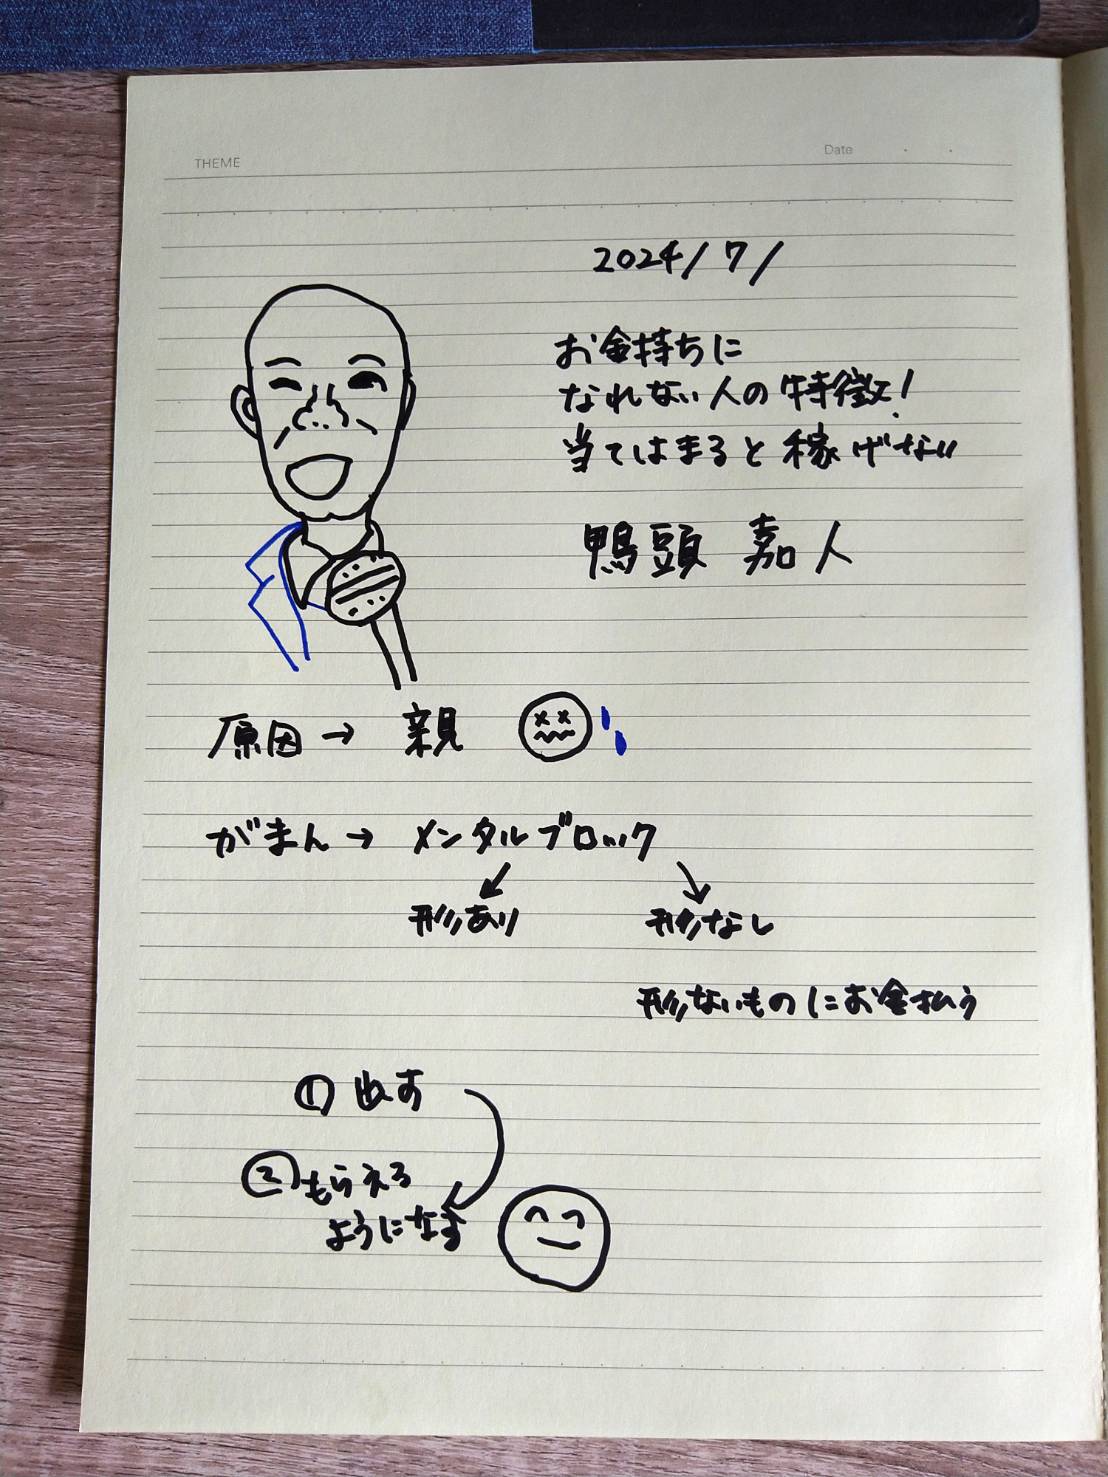 THEME
Date
2024/7/
お金持ちに
なれない人の特徴!
当てはまると稼げない
鴨頭 嘉人
原因→親
がまん→メンタルブロック
形あり 形なし
形ないものにお金払う
① 出す
② もらえる
ようになる